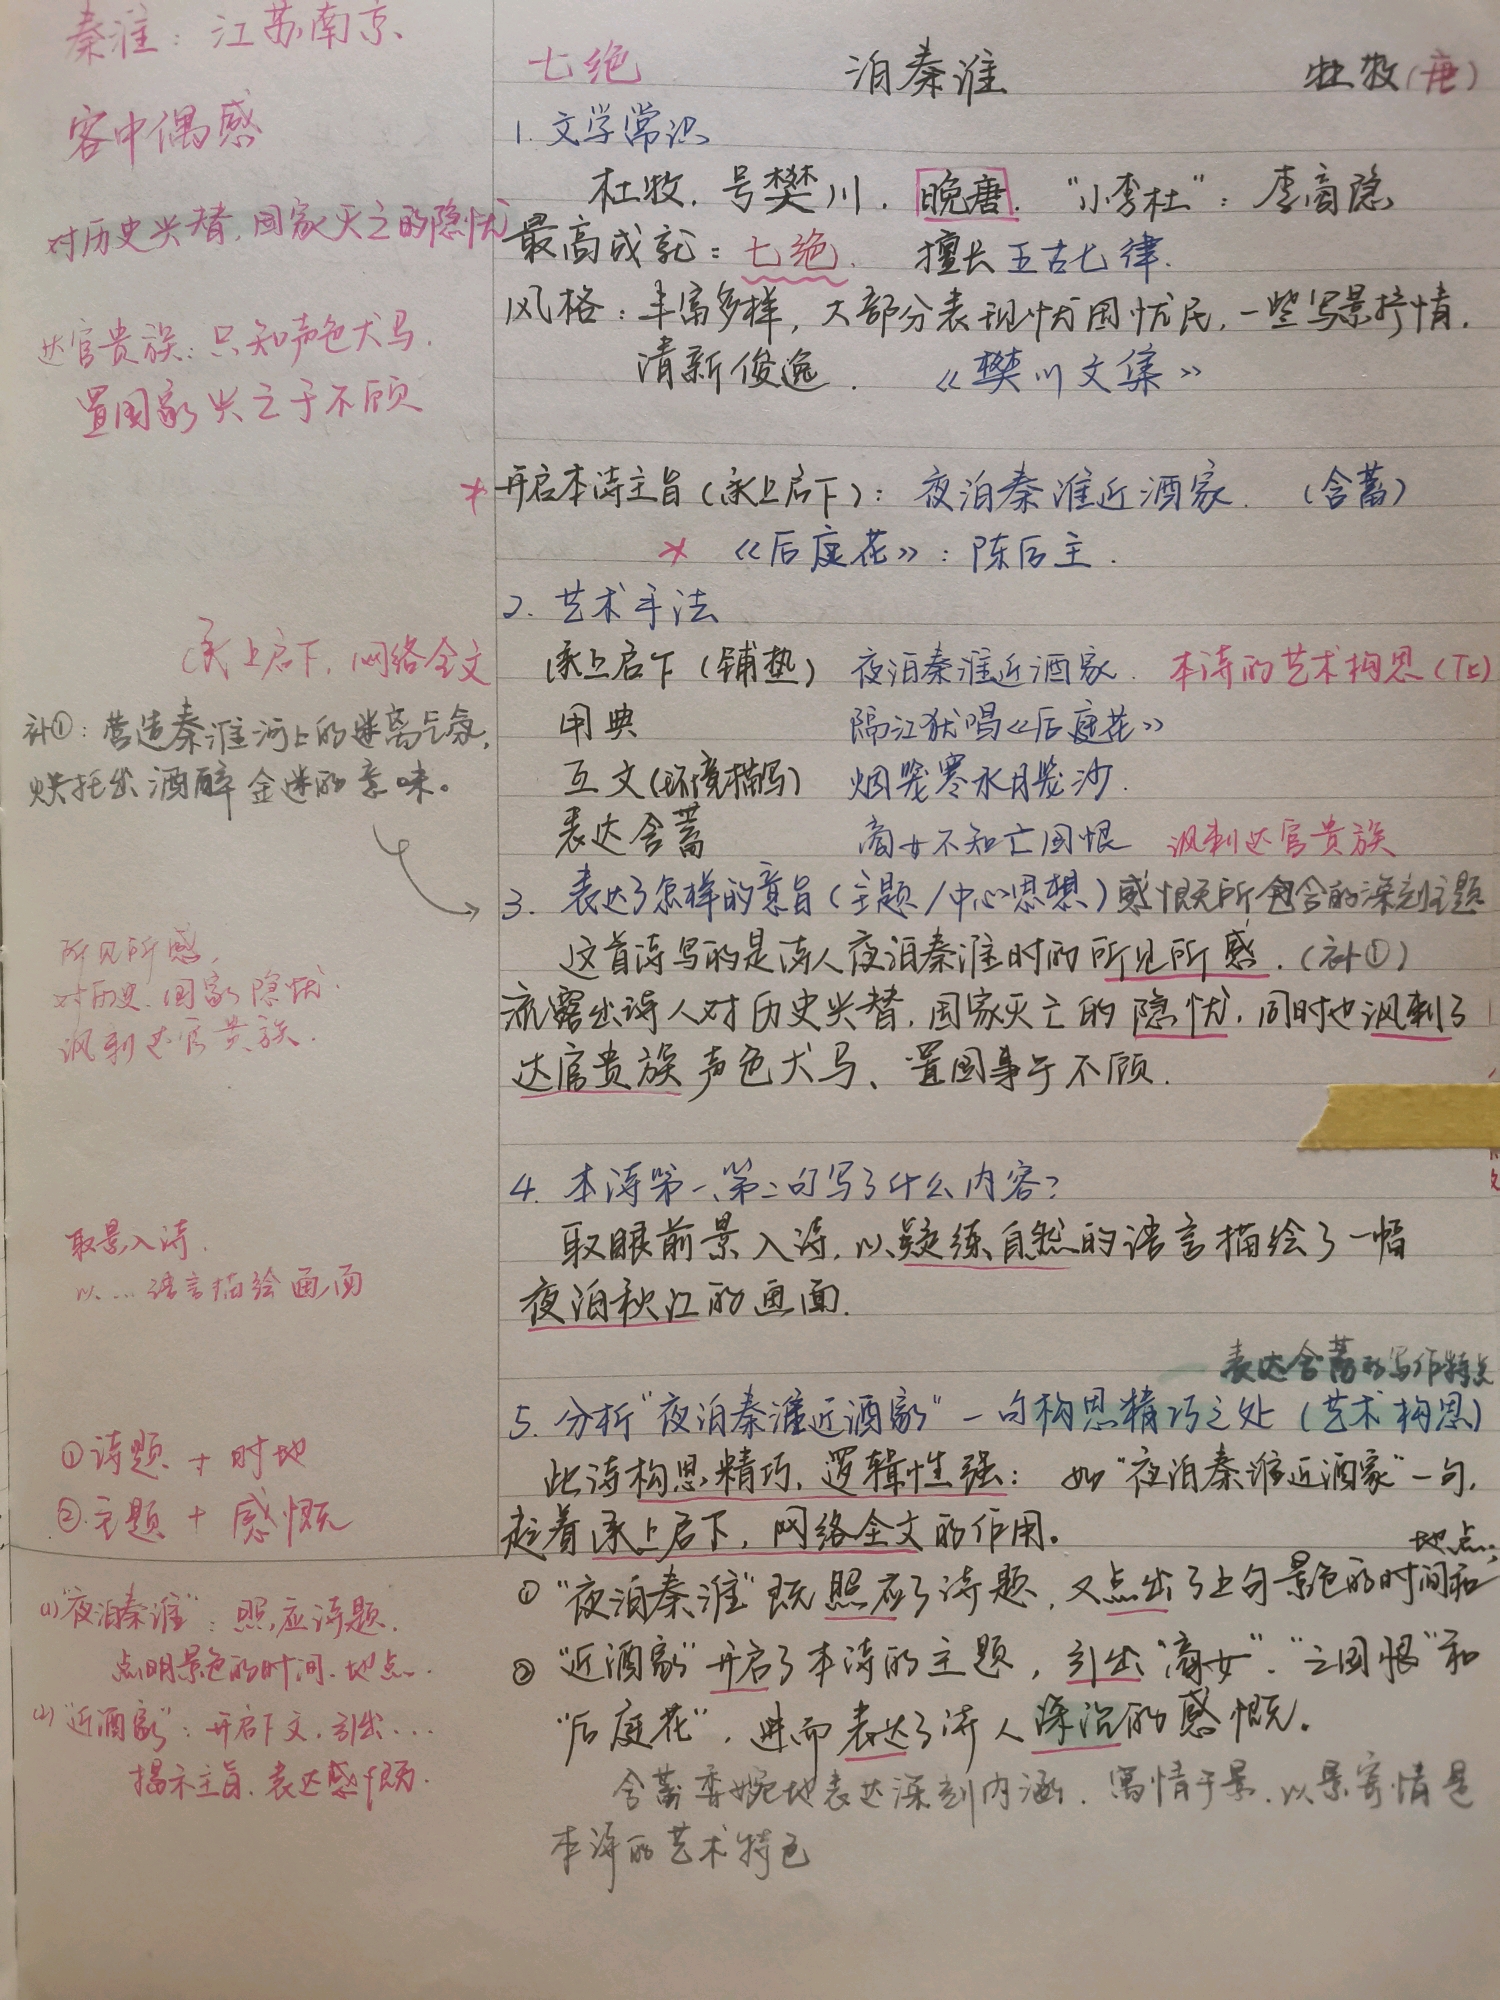 秦淮：江苏南京、
客中偶感
对历史兴替，国家灭亡的隐忧
达官贵族：只知声色犬马．
置国家兴亡于不顾
承上启下，网络全文
补①：营造秦淮河上的迷离气氛，
烘托出酒醉金迷的意味。
所见所感，
对历史．国家隐忧．
讽刺达官贵族．
取景入诗．
以……语言描绘画面
①诗题 + 时地
②主题 + 感慨
(1)"夜泊秦淮"：照应诗题．
点明景色的时间、地点．
(2)"近酒家"：开启下文．引出...
揭示主旨．表达感慨．
七绝 泊秦淮 杜牧(唐)
1.文学常识
杜牧．号樊川．晚唐．"小李杜"：李商隐
最高成就：七绝． 擅长五古七律．
风格：丰富多样，大部分表现忧国忧民，一些写景抒情．
清新俊逸． 《樊川文集》
开启本诗主旨(承上启下)：夜泊秦淮近酒家．(含蓄)
《后庭花》：陈后主．
2.艺术手法
承上启下(铺垫) 夜泊秦淮近酒家． 本诗的艺术构思(T5)
用典 隔江犹唱《后庭花》
互文(环境描写) 烟笼寒水月笼沙．
表达含蓄 商女不知亡国恨 讽刺达官贵族
3. 表达了怎样的意旨(主题/中心思想)感慨所包含的深刻主题
这首诗写的是诗人夜泊秦淮时的所见所感．(补①)
流露出诗人对历史兴替，国家灭亡的隐忧，同时也讽刺了
达官贵族声色犬马、置国事于不顾．
4. 本诗第一、第二句写了什么内容？
取眼前景入诗，以凝练自然的语言描绘了一幅
夜泊秋江的画面．
表达含蓄的写作特点
5. 分析"夜泊秦淮近酒家"一句构思精巧之处(艺术构思)
此诗构思精巧，逻辑性强：如"夜泊秦淮近酒家"一句，
起着承上启下，网络全文的作用。
地点；
①"夜泊秦淮"既照应了诗题，又点出了上句景色的时间和
②"近酒家"开启了本诗的主题，引出"商女"．"亡国恨"和
"后庭花"，进而表达了诗人深沉的感慨。
含蓄委婉地表达深刻内涵．寓情于景．以景寄情是
本诗的艺术特色